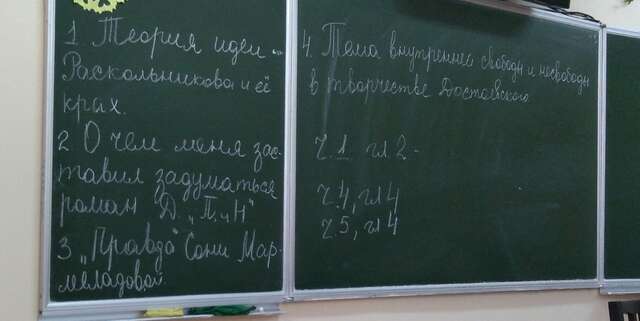 1. Теория идеи
Раскольникова и её
крах.
2. О чем меня зас-
тавил задуматься
роман Д. „П. и Н"
3. „Правда" Сони Мар-
меладовой
4. Тема внутренней свободы и несвободы
в творчестве Достоевского
Ч. 1 гл 2 -
Ч. 4, гл 4
Ч. 5, гл 4